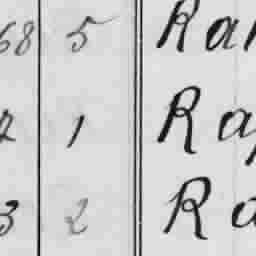 68 5 Ran
2 1 Ra
3 2 Ra